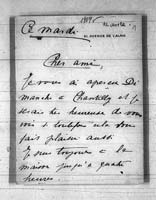 Ce mardi
31, AVENUE DE L'ALMA
Cher ami,
Je vous ai aperçu Di
manche à Chantilly et je
serais bien heureuse de vous
voir si toutefois cela vous
fais plaisir aussi.
Je suis toujours à la
maison jusqu'à quatre
heures